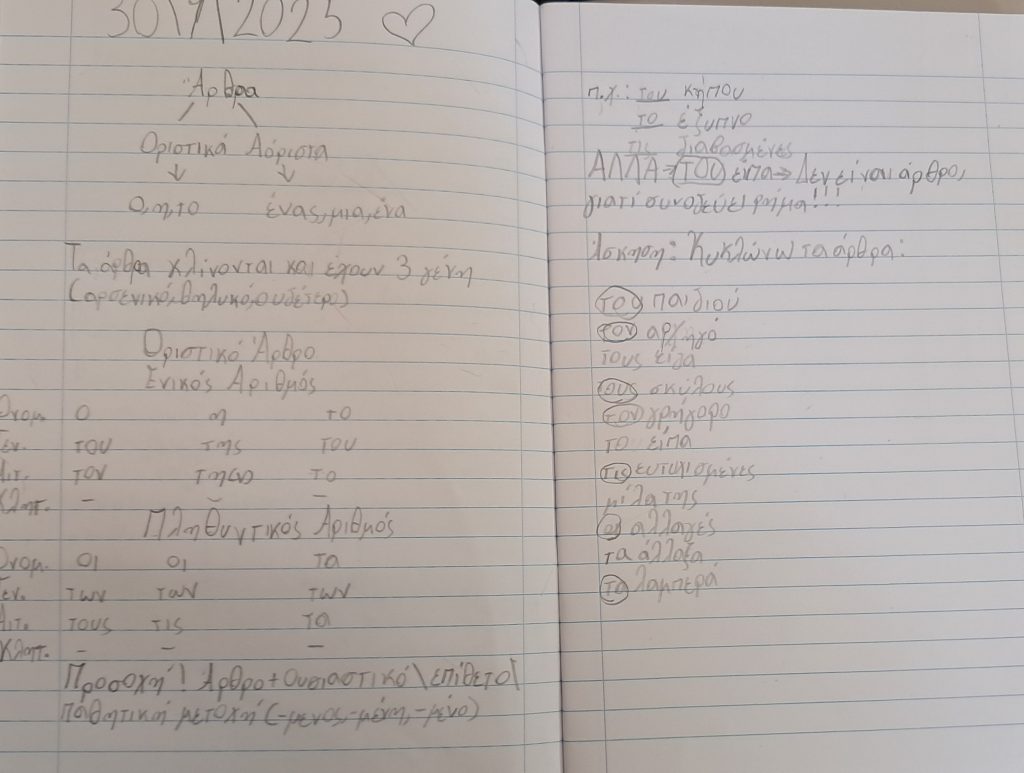 30\7\2023
Άρθρα
Οριστικά Αόριστα
Ο, η, το ένας, μια, ένα
Τα άρθρα κλίνονται και έχουν 3 γένη
(αρσενικό, θηλυκό, ουδέτερο)
Οριστικό Άρθρο
Ενικός Αριθμός
Ονομ. Ο η το
Γεν. του της του
Αιτ. τον τη(ν) το
Κλητ. – – –
Πληθυντικός Αριθμός
Ονομ. οι οι τα
Γεν. των των των
Αιτ. τους τις τα
Κλητ. – – –
Προσοχή! Άρθρο + Ουσιαστικό \ επίθετο \
παθητική μετοχή (-μενος, -μένη, -μένο)
π.χ.: του κήπου
το έξυπνο
τις διαβασμένες
ΑΛΛΑ → ΤΟΥ είπα → Δεν είναι άρθρο,
γιατί συνοδεύει ρήμα!!!
Άσκηση: Κυκλώνω τα άρθρα:
του παιδιού
τον αρχηγό
τους είπα
τους σκύλους
τον γρήγορο
το είπα
τις ευτυχισμένες
μίλα της
οι αλλαγές
τα άλλαξα
τα λαμπερά